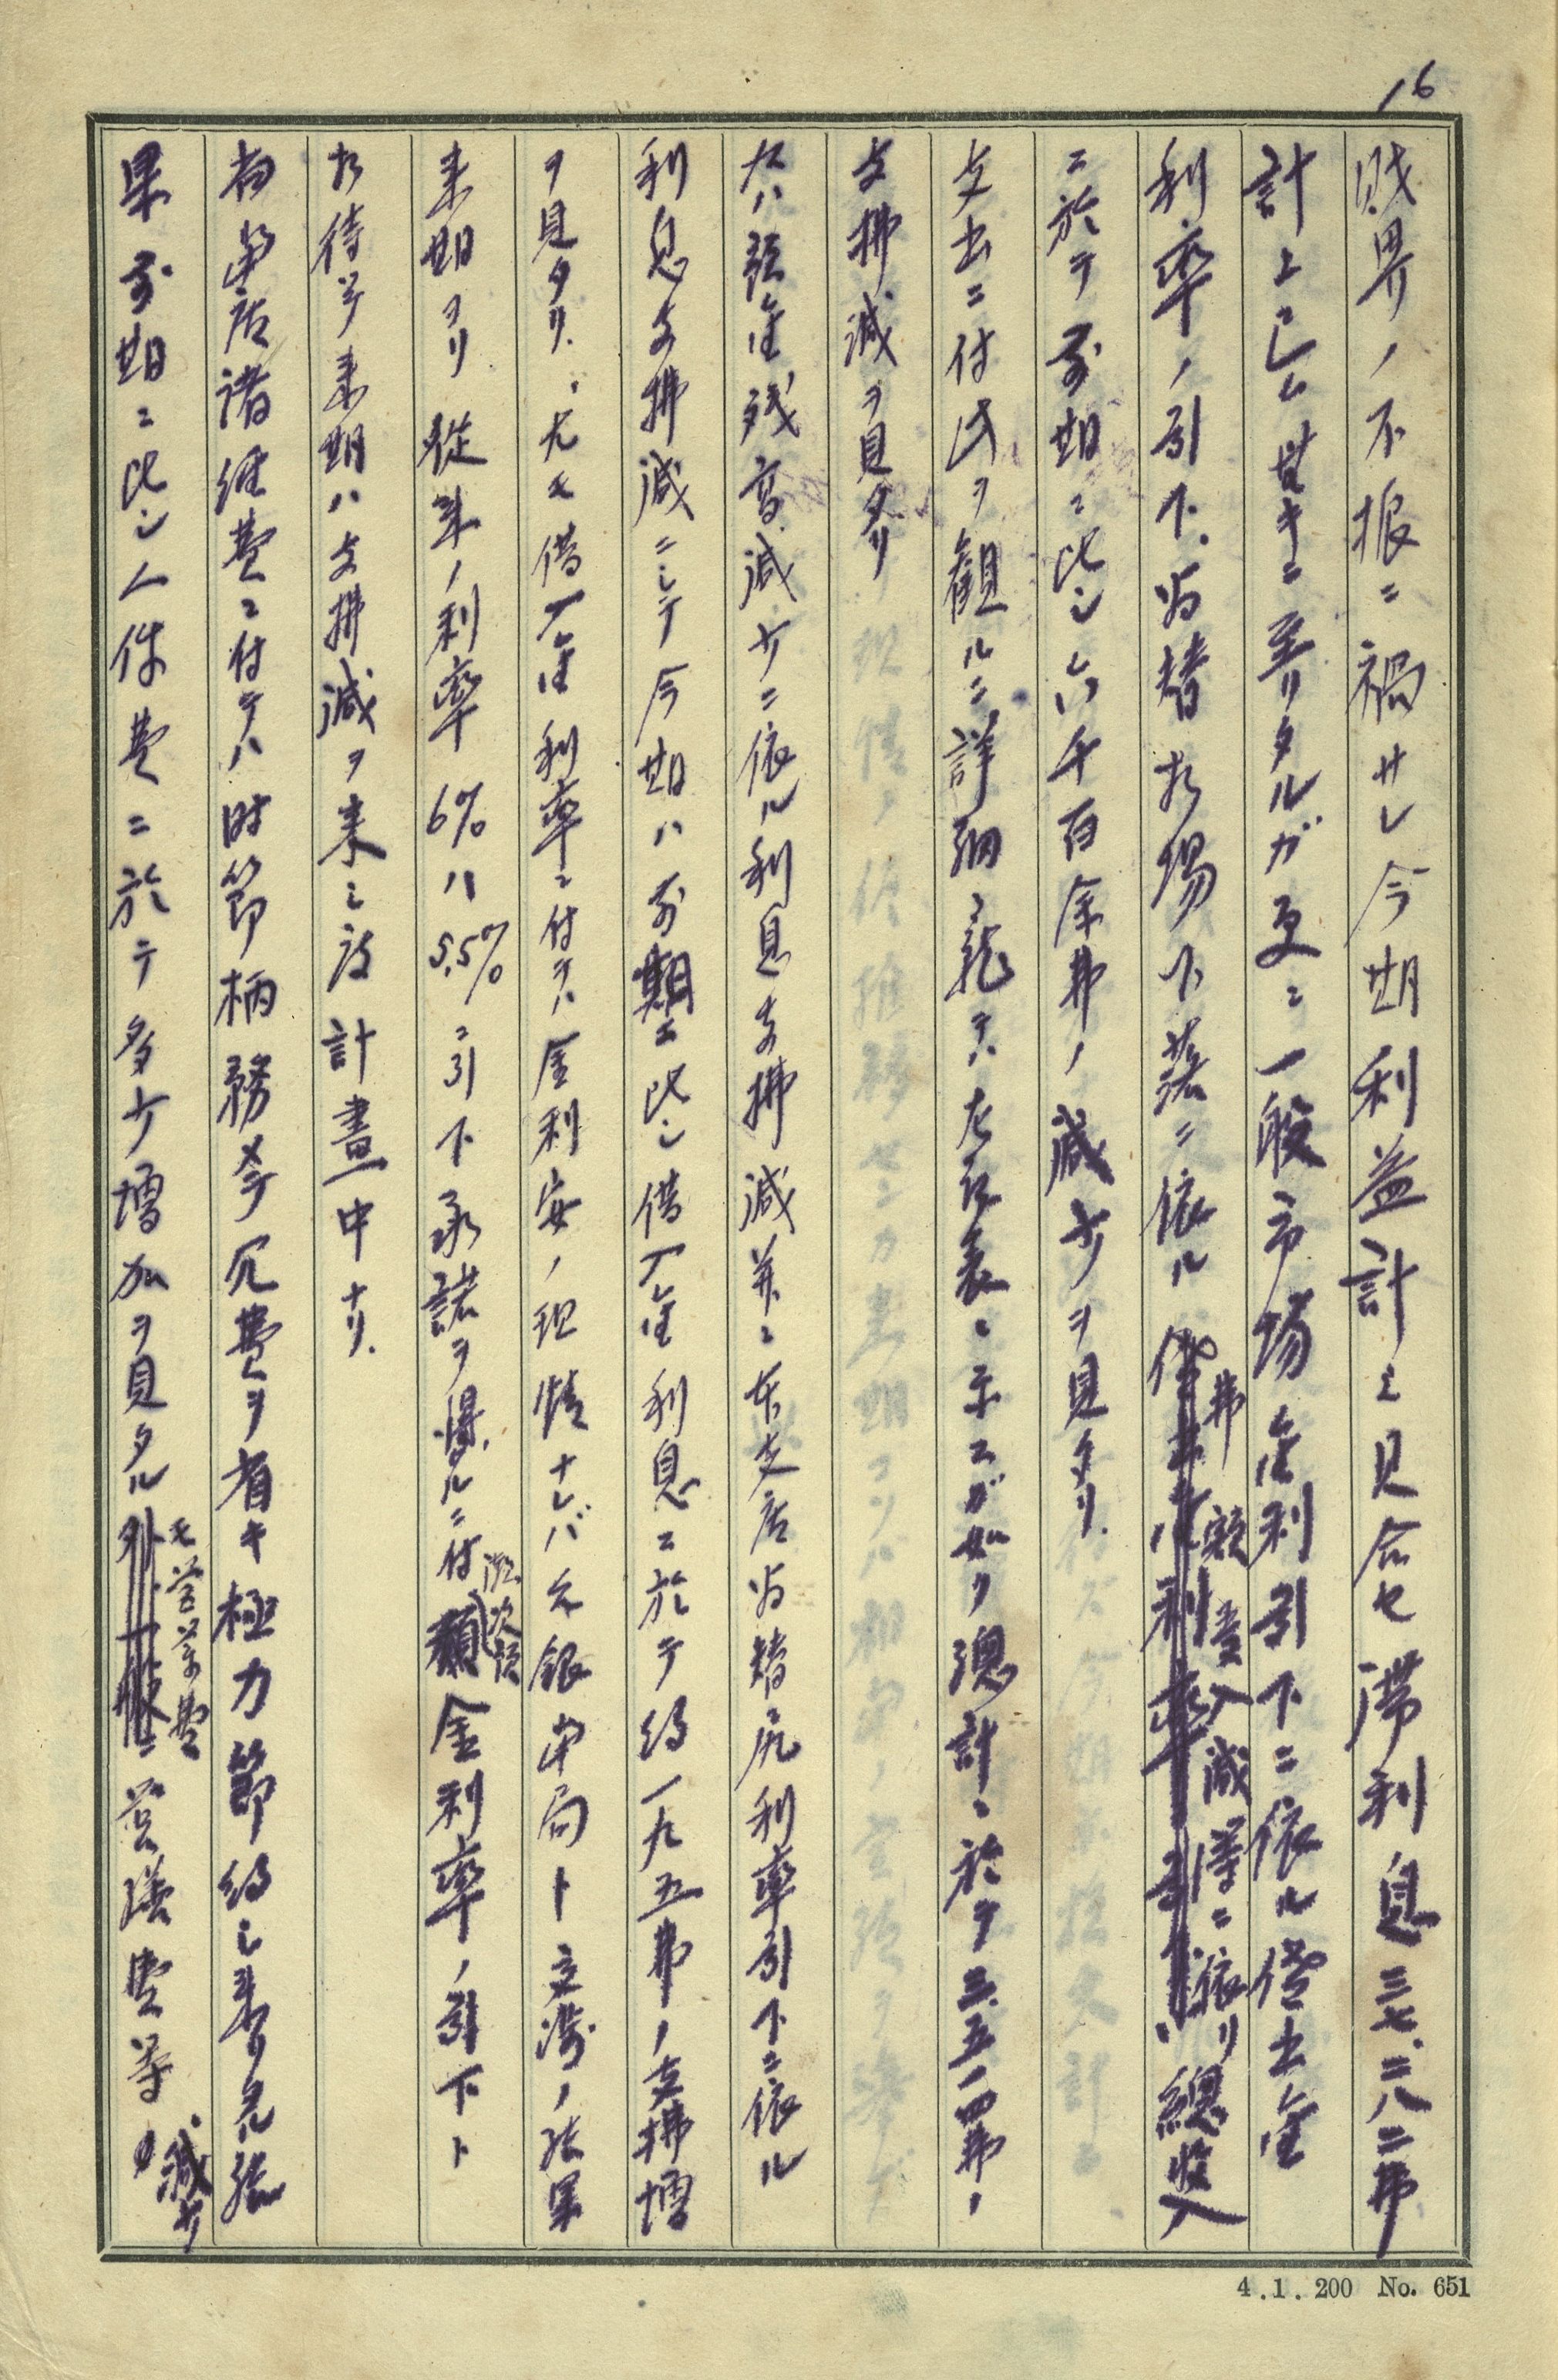 16
財界ノ不振ニ禍サレ今期利益計上見合セ滞利息三七、二八二弗
計上已ム無キニ至リタルガ更ニ一般市場金利引下ニ依ル貸出金
利率ノ引下、為替相場下落ニ依ル弗額収入減等ニ依リ總収入
ニ於テ前期ニ比シ六千百余弗ノ減少ヲ見タリ.
支出ニ付此ヲ観ルニ詳細ニ亙テハ左記表ニ示スガ如ク總計ニ於テ三、五一四弗ノ
支拂減ヲ見タリ
右ハ預金残高減少ニ依ル利息支拂減并ニ本支店為替尻利率引下ニ依ル
利息支拂減ニシテ今期ハ前期ニ比シ借入金利息ニ於テ約一九五弗ノ支拂増
ヲ見タリ.、尤モ借入金利率ニ付テハ金利安ノ現情ナレバ允銀当局ト交渉ノ結果
来期ヨリ従来ノ利率6%ハ5.5%ニ引下承諾ヲ得タルニ付漸次預金利率ノ引下ト
相待テ来期ハ支拂減ヲ来シ計畫中ナリ.
尚当店諸経費ニ付テハ時節柄務メテ冗費ヲ省キ極力節約シ来リ
果前期ニ比シ人件費ニ於テ多少増加ヲ見タルモ営業費
4.1.200 No. 651